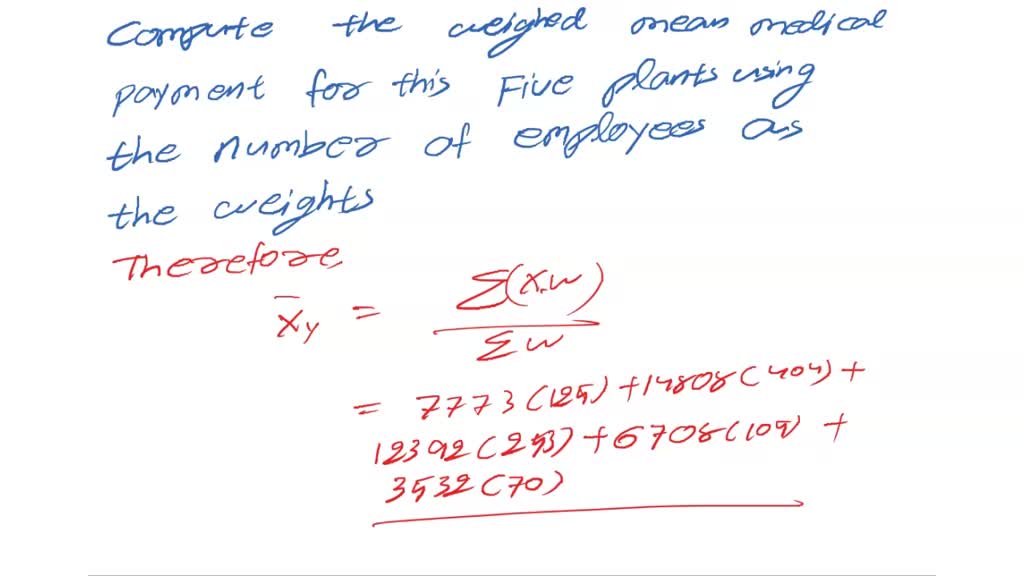 Compute the weighed mean medical
payment for this Five plants using
the number of employees as
the weights
Therefore,
x̄y = Σ(x.w)
Σw
= 7773(125) + 14808(404) +
12392(253) + 6708(109) +
3532(70)